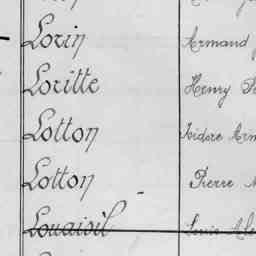 Lorin Armand
Loritte Henry
Lotton Isidore
Lotton Pierre
Louaisil Louis